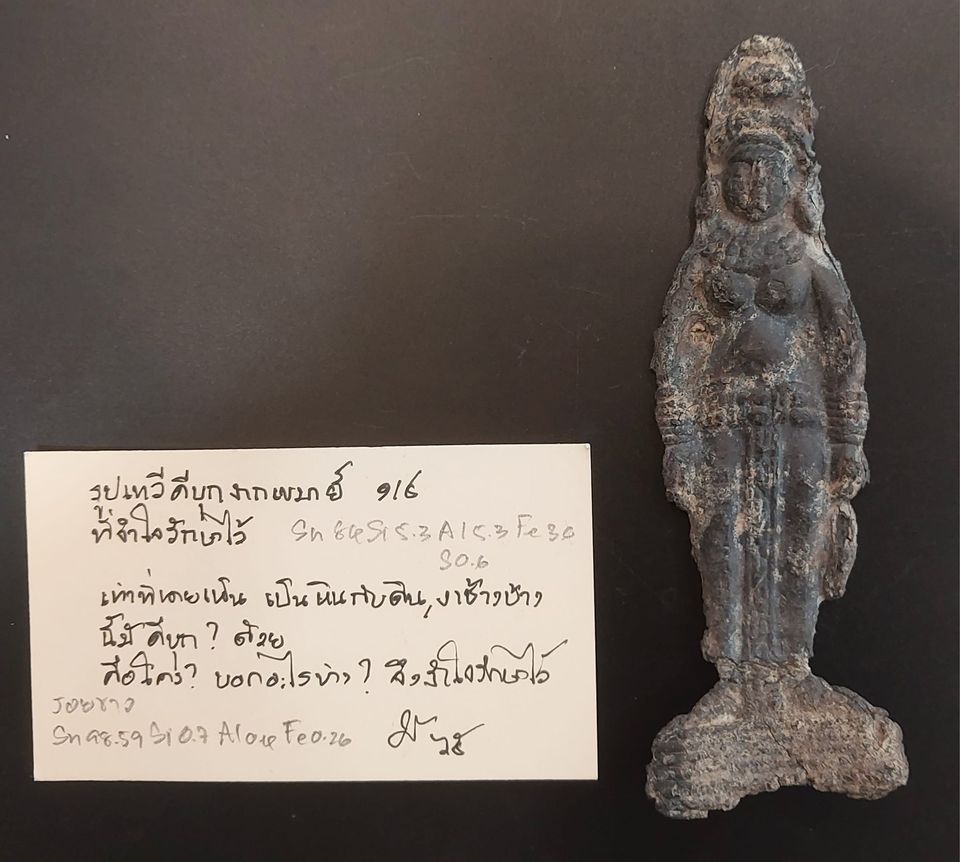 รูปเทวีดีบุกจากพบาย์ ๑/๕
ที่จำใจรักษาไว้ Sn 84 Si 5.3 Al 5.3 Fe 3.0
S 0.6
เท่าที่เคยเห็น เป็นหินกับดิน, งาช้างบ้าง
นี้มี ดีบุก? ด้วย
คือใคร? บอกอะไรบ้าง? จึงจำใจรักษาไว้
รอยขาว
Sn 98.59 Si 0.7 Al 0.4 Fe 0.26